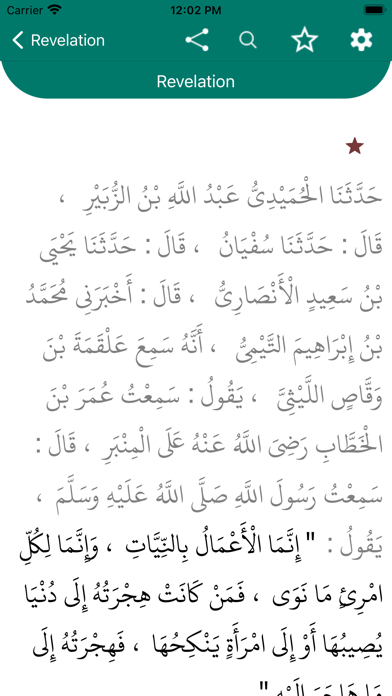 Carrier 12:02 PM
Revelation
Revelation
حَدَّثَنَا الْحُمَيْدِيُّ عَبْدُ اللَّهِ بْنُ الزُّبَيْرِ ،
قَالَ : حَدَّثَنَا سُفْيَانُ ، قَالَ : حَدَّثَنَا يَحْيَى
بْنُ سَعِيدٍ الْأَنْصَارِيُّ ، قَالَ : أَخْبَرَنِي مُحَمَّدُ
بْنُ إِبْرَاهِيمَ التَّيْمِيُّ ، أَنَّهُ سَمِعَ عَلْقَمَةَ بْنَ
وَقَّاصٍ اللَّيْثِيَّ ، يَقُولُ : سَمِعْتُ عُمَرَ بْنَ
الْخَطَّابِ رَضِيَ اللَّهُ عَنْهُ عَلَى الْمِنْبَرِ ، قَالَ :
سَمِعْتُ رَسُولَ اللَّهِ صَلَّى اللَّهُ عَلَيْهِ وَسَلَّمَ ،
يَقُولُ : " إِنَّمَا الْأَعْمَالُ بِالنِّيَّاتِ ، وَإِنَّمَا لِكُلِّ
امْرِئٍ مَا نَوَى ، فَمَنْ كَانَتْ هِجْرَتُهُ إِلَى دُنْيَا
يُصِيبُهَا أَوْ إِلَى امْرَأَةٍ يَنْكِحُهَا ، فَهِجْرَتُهُ إِلَى
مَا هَاجَرَ إِلَيْهِ "